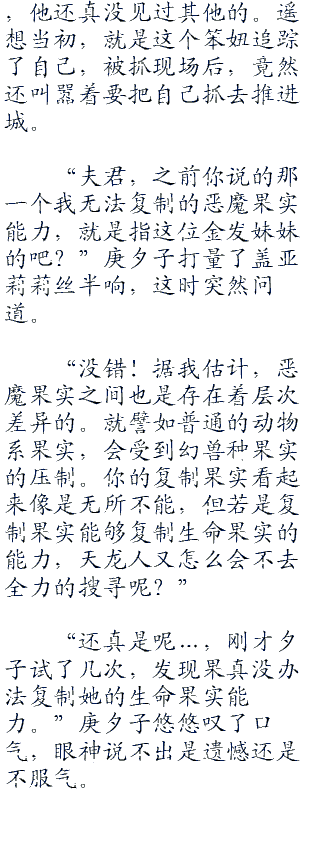 ，他还真没见过其他的。遥
想当初，就是这个笨妞追踪
了自己，被抓现场后，竟然
还叫嚣着要把自己抓去推进
城。
“夫君，之前你说的那
一个我无法复制的恶魔果实
能力，就是指这位金发妹妹
的吧？”庚夕子打量了盖亚
莉莉丝半响，这时突然问
道。
“没错！据我估计，恶
魔果实之间也是存在着层次
差异的。就譬如普通的动物
系果实，会受到幻兽种果实
的压制。你的复制果实看起
来像是无所不能，但若是复
制果实能够复制生命果实的
能力，天龙人又怎么会不去
全力的搜寻呢？”
“还真是呢…，刚才夕
子试了几次，发现果真没办
法复制她的生命果实能
力。”庚夕子悠悠叹了口
气，眼神说不出是遗憾还是
不服气。